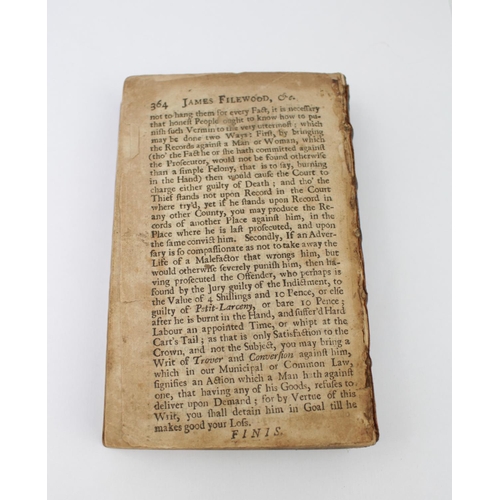 364 JAMES FILEWOOD, &c.
not to hang them for every Fact, it is necessary
that honest People ought to know how to pu-
nish such Vermin to the very uttermost; which
may be done two Ways: First, By bringing
the Records against a Man or Woman, which
(tho' the Fact he or she hath committed against
the Prosecutor, would not be found otherwise
than a simple Felony, that is to say, burning
in the Hand) then would cause the Court to
charge either guilty of Death; and tho' the
Thief stands not upon Record in the Court
where try'd, yet if he stands upon Record in
any other County, you may produce the Re-
cords of another Place against him, in the
Place where he is last prosecuted, and upon
the same convict him. Secondly, If an Adver-
sary is so compassionate as not to take away the
Life of a Malefactor that wrongs him, but
would otherwise severely punish him, then ha-
ving prosecuted the Offender, who perhaps is
found by the Jury guilty of the Indictment, to
the Value of 4 Shillings and 10 Pence, or else
guilty of Petit-Larceny, or bare 10 Pence;
after he is burnt in the Hand, and suffer'd Hard
Labour an appointed Time, or whipt at the
Cart's Tail; as that is only Satisfaction to the
Crown, and not the Subject, you may bring a
Writ of Trover and Conversion against him,
which in our Municipal or Common Law,
signifies an Action which a Man hath against
one, that having any of his Goods, refuses to
deliver upon Demand; for by Vertue of this
Writ, you shall detain him in Goal till he
makes good your Loss.
FINIS.